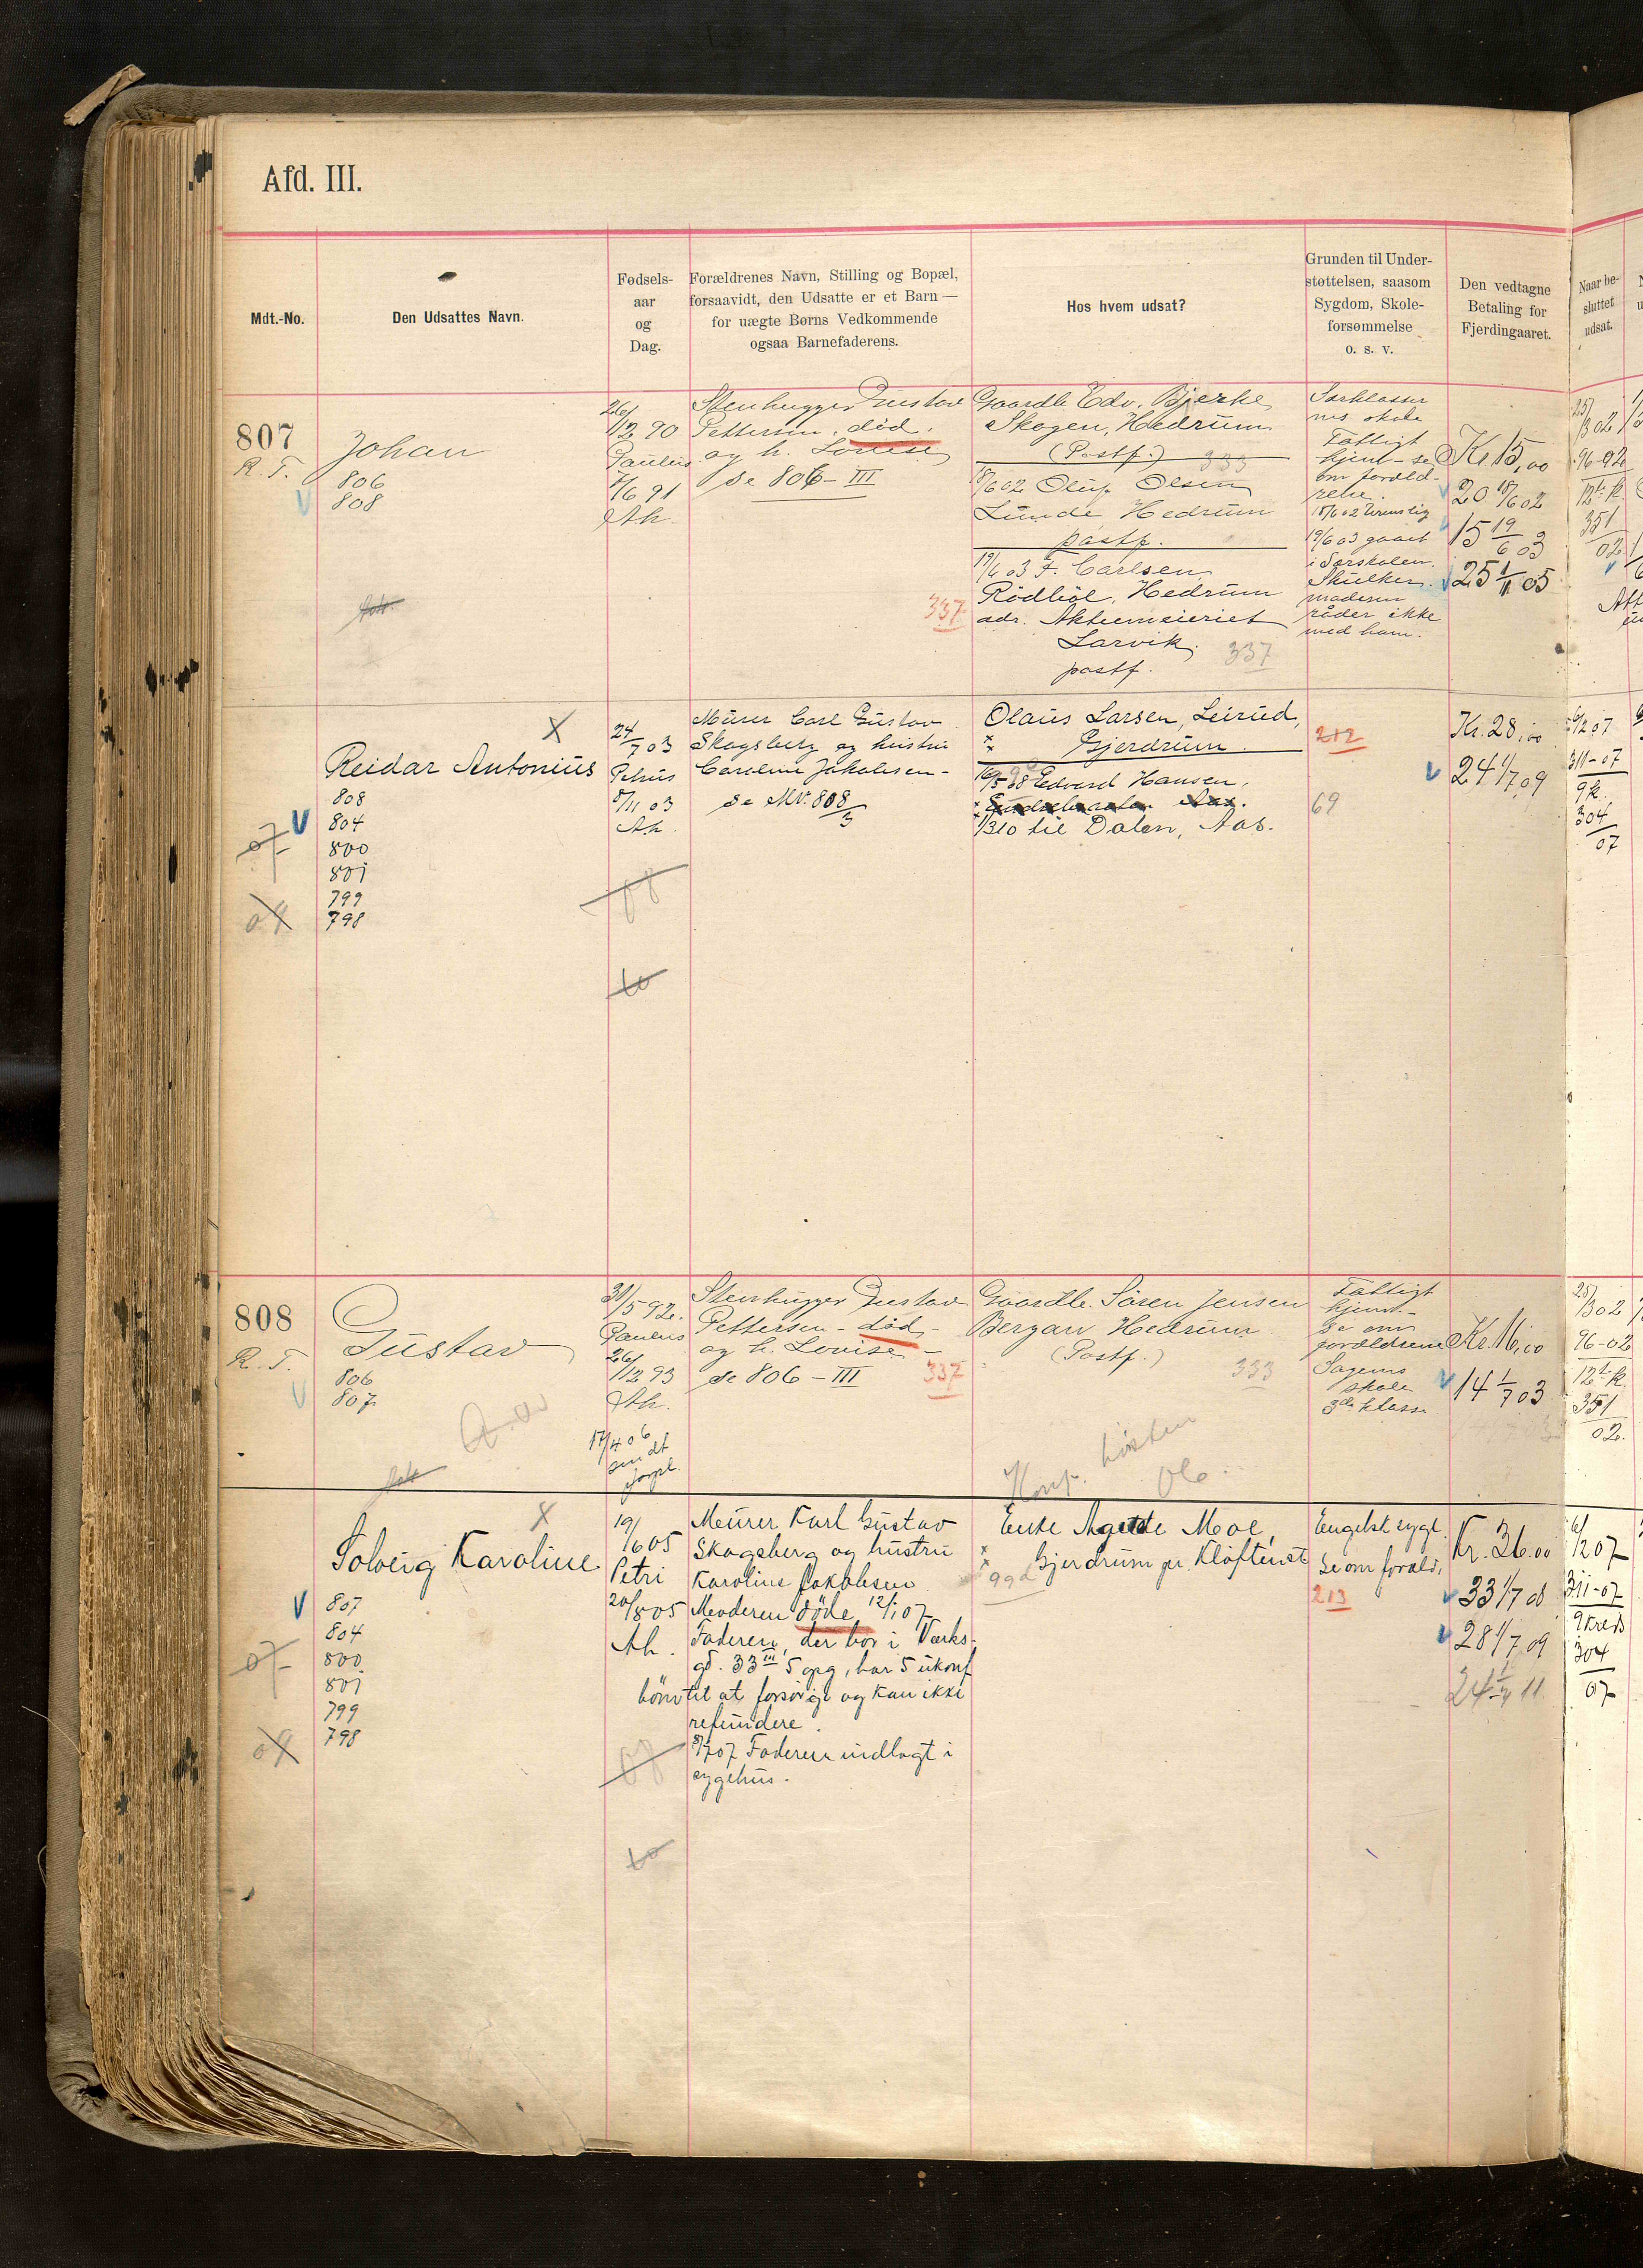 Afd. III.
Mdt.-No.
Den Udsattes Navn.
Fødsels-
aar
og
Dag.
Forældrenes Navn, Stilling og Bopæl,
forsaavidt, den Udsatte er et Barn —
for uægte Børns Vedkommende
ogsaa Barnefaderens.
Hos hvem udsat?
Grunden til Under-
støttelsen, saasom
Sygdom, Skole-
forsømmelse
o. s. v.
Den vedtagne
Betaling for
Fjerdingaaret.
Naar be-
sluttet
udsat.
807
R. T.
Johan
806
808
26/12 90
Paulus
8/6 91
Ak.
Stenhugger Gustav
Pettersen, død,
og h. Lovise
se 806 – III
337
Gaardb. Edv. Bjerke
Skogen, Hedrum
(Postf.) 333
18/6 02 Oluf Olsen
Lunde Hedrum
postf.
19/6 03 F. Carlsen
Rødbøl, Hedrum
adr. Aktiemeieriet
Larvik.
postf. 337
Særklasser
nes skole
Fattigt
hjem – se
om foræld-
rene.
19/6 03 gaaet
i Særskolen.
Skulker.
moderen
råder ikke
med ham.
Kr. 15,00
20 18/6 02
15 19/6 03
25 1/11 05
25/3 02
96-02
12te k.
351
02
X
Reidar Antonius
808
804
800
801
799
798
07
09
24/7 03
Petrus
8/11 03
Ak.
08
10
Murer Carl Gustav
Skogsberg og hustru
Caroline Jakobsen –
se Mt. 808/3
Olaus Larsen, Leirud,
Gjerdrum.
16/5 08 Edvard Hansen,
Aas.
1/3 10 til Dalen, Aas.
212
69
Kr. 28,00
24 1/7 09
6/12 07
311-07
9 k.
304
07
808
R. T.
Gustav
806
807
31/5 92.
Paulus
26/12 93
Ak.
17/4 06
Stenhugger Gustav
Pettersen – død –
og h. Lovise –
se 806 – III
337
Gaardb. Søren Jensen
Bergan Hedrum
(Postf.)
333
Konf. høsten
06.
Fattigt
hjem –
se om
forældrene
Sagens
skole
3die klasse
Kr. 16,00
14 1/7 03
25/3 02
96-02
12te k.
351
02.
X
Solveig Karoline
807
804
800
801
799
798
07
09
19/6 05
Petri
20/8 05
Ak.
08
10
Murer Karl Gustav
Skogsberg og hustru
Karoline Jakobsen
Moderen døde 12/1 07
Faderen, der bor i Værks-
gd. 33 III 5 opg, har 5 ukonf
børn til at forsørge og kan ikke
refundere.
8/7 07 Faderen indlagt i
sygehus.
Enke Agathe Moe,
Gjerdrum pr. Kløften st
99
Engelsk syge.
Se om foræld.
213
Kr. 36.00
33 1/7 08
28 1/7 09
24 11.
6/12 07
311-07
9 kreds
304
07